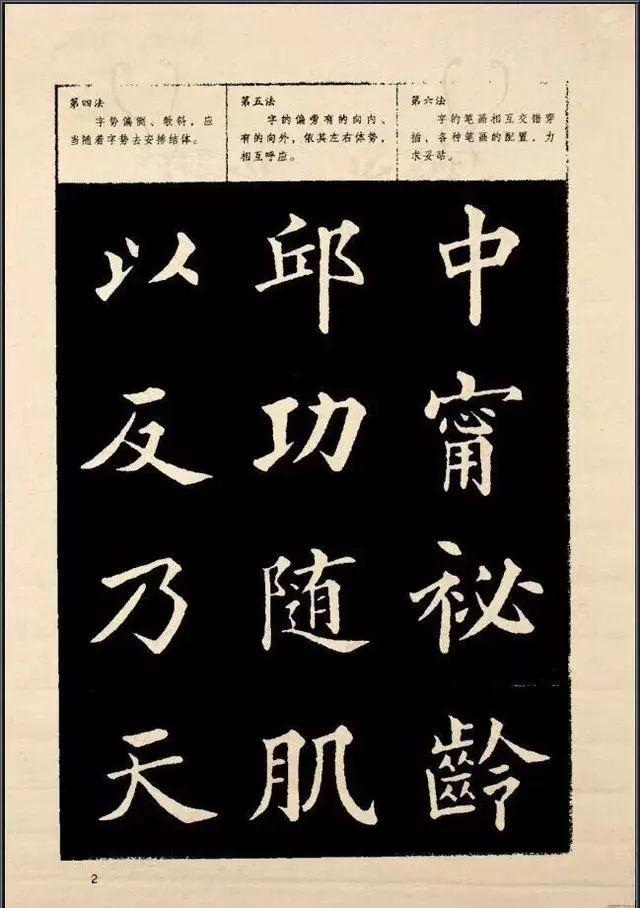 第四法
字势偏侧、欹斜,应
当随着字势去安排结体。
第五法
字的偏旁有的向内、
有的向外,依其左右体势,
相互呼应。
第六法
字的笔画相互交错穿
插,各种笔画的配置,力
求妥贴。
以反乃天
邱功随肌
中甯祕齡
2